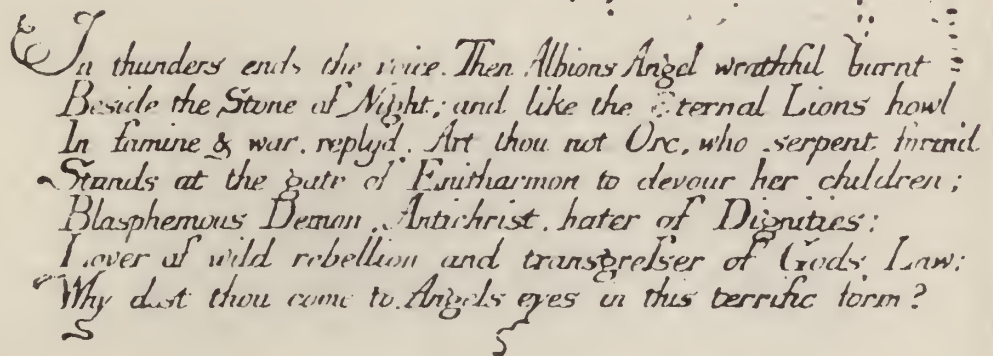 In thunders ends the voice. Then Albions Angel wrathful burnt
Beside the Stone of Night; and like the Eternal Lions howl
In famine & war, replyd. Art thou not Orc, who serpent form'd
Stands at the gate of Enitharmon to devour her children;
Blasphemous Demon, Antichrist, hater of Dignities;
Lover of wild rebellion and transgreſser of Gods Law;
Why dost thou come to Angels eyes in this terrific form?